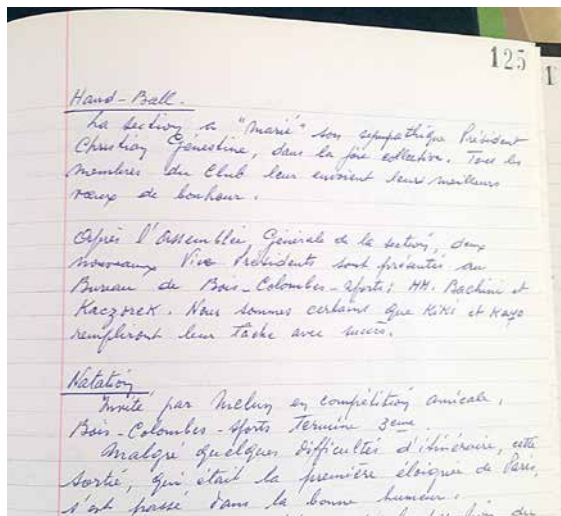 125
1
Hand-Ball.
La section a "marié" son sympathique Président
Christian Génestine, dans la joie collective. Tous les
membres du Club leur envoient leurs meilleurs
vœux de bonheur.
Après l'Assemblée Générale de la section, deux
nouveaux Vice Présidents sont présentés au
Bureau de Bois-Colombes-sports; MM. Bachini et
Kaczorek. Nous sommes certains que Kiki et Kazo
rempliront leur tâche avec succès.
Natation
Invité par Melun en compétition amicale,
Bois-Colombes-sports termine 3eme.
Malgré quelques difficultés d'itinéraire, cette
sortie, qui était la première éloignée de Paris,
s'est passé dans la bonne humeur.
du